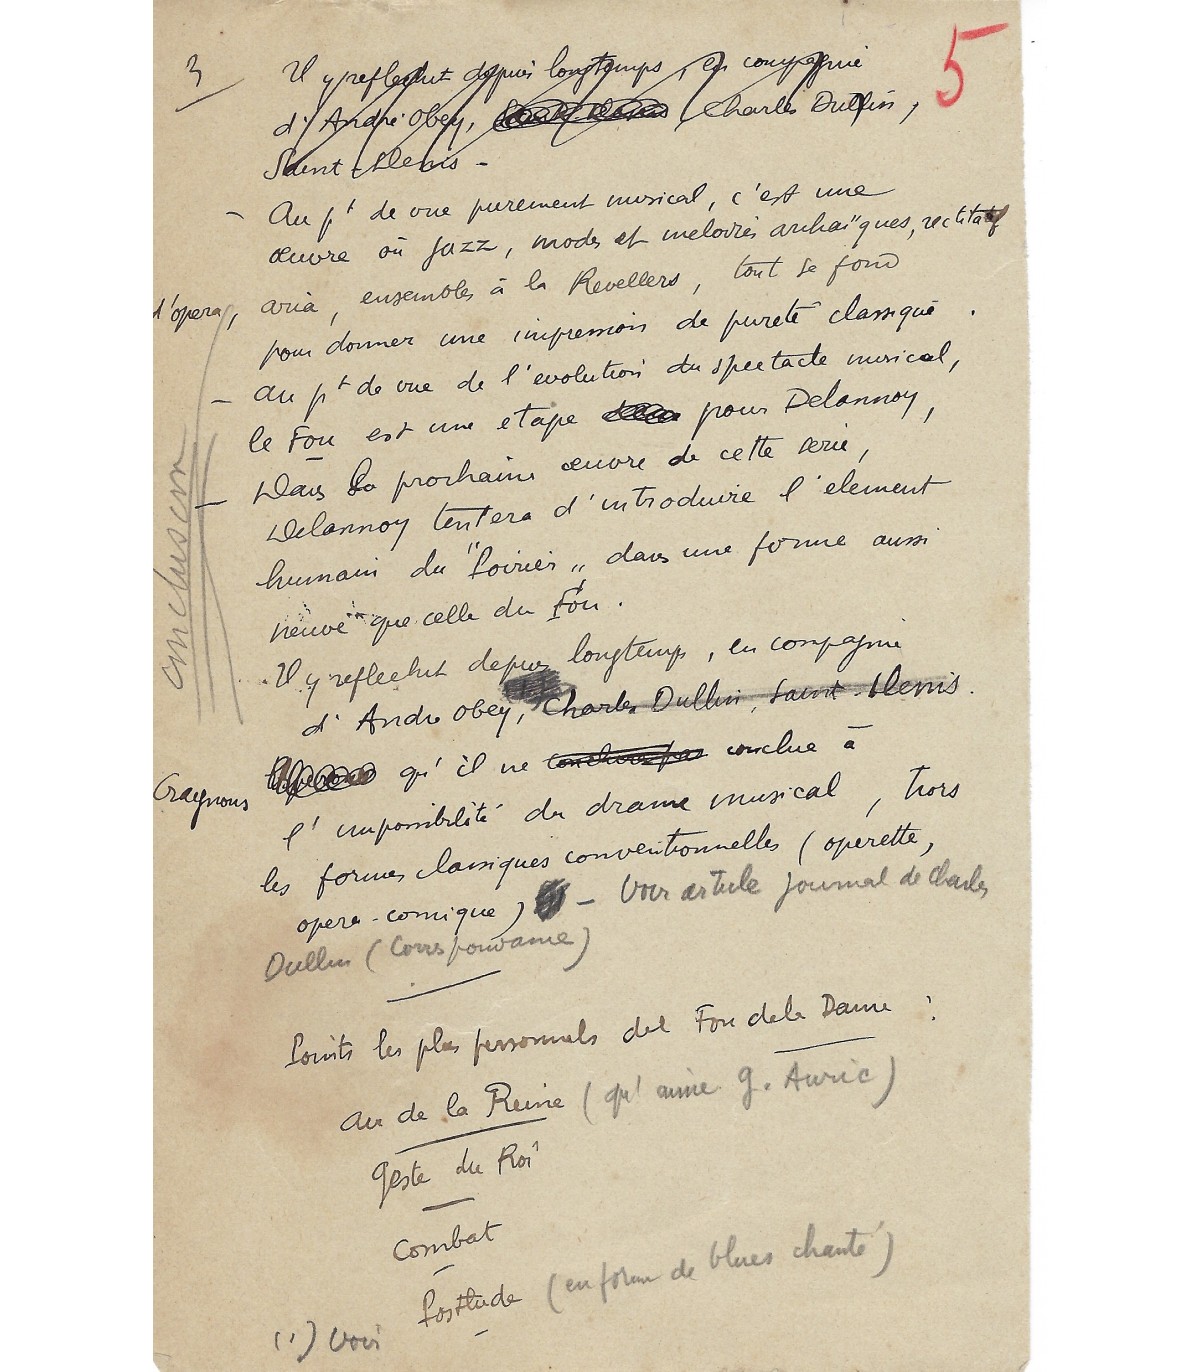 3
5
Il y reflechit depuis longtemps, en compagnie
d'André Obey, Charles Dullin,
Saint-Denis -
- Au pt de vue purement musical, c'est une
œuvre où jazz, modes et melodies archaïques, recitatif
d'opera, aria, ensembles à la Revellers, tout se fond
pour donner une impression de pureté classique.
- au pt de vue de l'evolution du spectacle musical,
le Fou est une etape pour Delannoy,
- Dans la prochaine œuvre de cette serie,
Delannoy tentera d'introduire l'element
humain du "Poirier" dans une forme aussi
neuve que celle du Fou.
conclusion
Il y reflechit depuis longtemps, en compagnie
d'Andre Obey, Charles Dullin, Saint-Denis.
Craignons qu'il ne conclue à
l'impossibilité du drame musical, hors
les formes classiques conventionnelles (operette,
opera-comique) - Voir article journal de Charles
Dullin (Correspondance)
Points les plus personnels del Fou de la Dame :
air de la Reine (qu'aime G. Auric)
Geste du Roi
Combat
Postlude (en forme de blues chanté)
(1) Voir